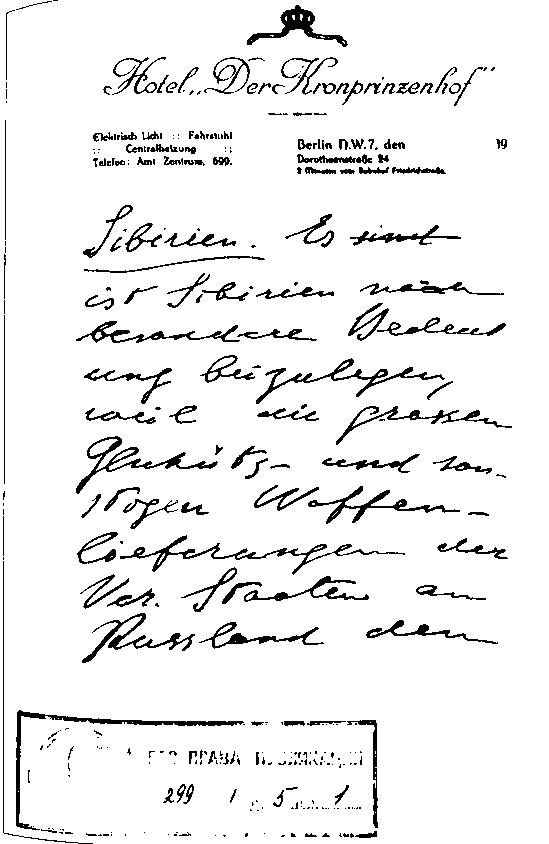 Hotel „Der Kronprinzenhof"
Elektrisch Licht :: Fahrstuhl
:: Centralheizung ::
Telefon: Amt Zentrum, 699.
Berlin N.W.7, den 19
Dorotheenstraße 24
2 Minuten vom Bahnhof Friedrichstraße.
Sibirien. Es sind
ist Sibirien noch
besondere Bedeut
ung beizulegen,
weil die grossen
Geschütz- und son-
stigen Waffen-
lieferungen der
Ver. Staaten an
Russland den
БЕЗ ПРАВА ПУБЛИКАЦИИ
299 1 5 1